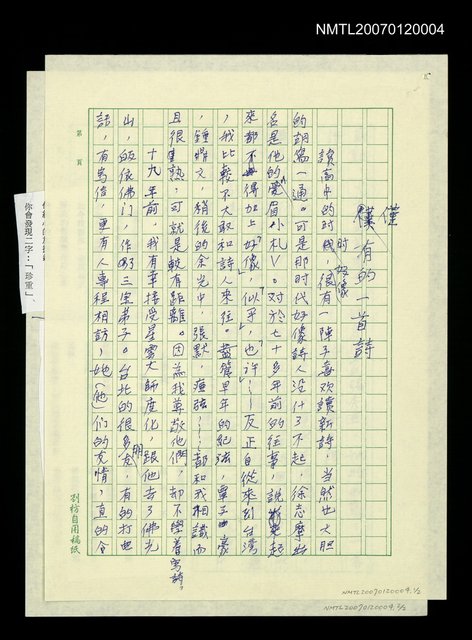 NMTL20070120004
僅有的一首詩
讀高中的時候，好像很有一陣子喜歡讀新詩，當然也大胆
的胡寫一通。可是那時代好像詩人沒什了不起，徐志摩的
名是他的《愛眉小札》。對於七十多年前的往事，說起
來都不得加上「好像」，「似乎」，「也許」……反正自從來到台灣
，我比較不大敢和詩人來往。儘管早年的紀弦，覃子豪
，鍾鼎文，稍後的余光中，張默，瘂弦……都和我相識而
且很熟，可就是較有距離。因為我尊敬他們，却不學着寫詩。
十九年前，我有幸接受星雲大師度化，跟他去了佛光
山，皈依佛門，作為三寶弟子。台北的很多朋友，有的打電
話，有寫信，更有人專程相訪，她（他）們的友情，真的令
第
頁
劉枋自用稿紙
你會發現二字：「珍重」、
NMTL20070120004.1/2
NMTL20070120004.2/2